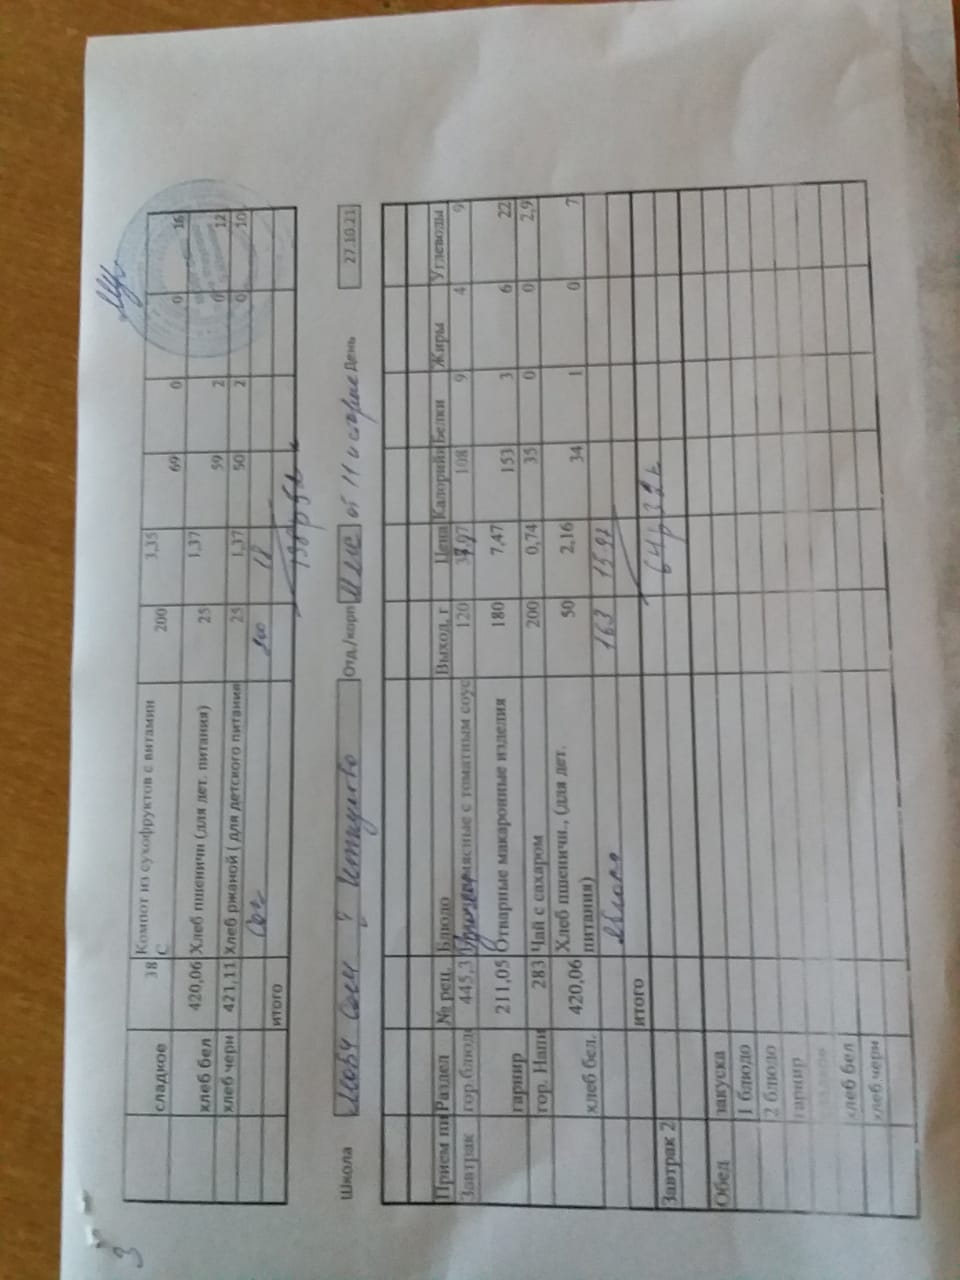 3
сладкое 38 Компот из сухофруктов с витамин С 200 3,35 69 0 0 16
хлеб бел 420,06 Хлеб пшеничн (для дет. питания) 25 1,37 59 2 0 12
хлеб черн 421,11 Хлеб ржаной ( для детского питания 25 1,37 50 2 0 10
Сок 200 18
итого
Школа МОБУ СОШ Отд./корп от 11 и старше День 27.10.21
Прием пи Раздел № рец. Блюдо Выход, г Цена Калорийн Белки Жиры Углеводы
Завтрак гор.блюдо 445,3 мясные с томатным соус 120 108 9 4 9
гарнир 211,05 Отварные макаронные изделия 180 7,47 153 3 6 22
гор. Напи 283 Чай с сахаром 200 0,74 35 0 0 2,9
хлеб бел. 420,06 Хлеб пшеничн., (для дет. питания) 50 2,16 34 1 0 7
Яблоко 163
итого
64р 32к
Завтрак 2
Обед закуска
1 блюдо
2 блюдо
гарнир
хлеб бел
хлеб черн